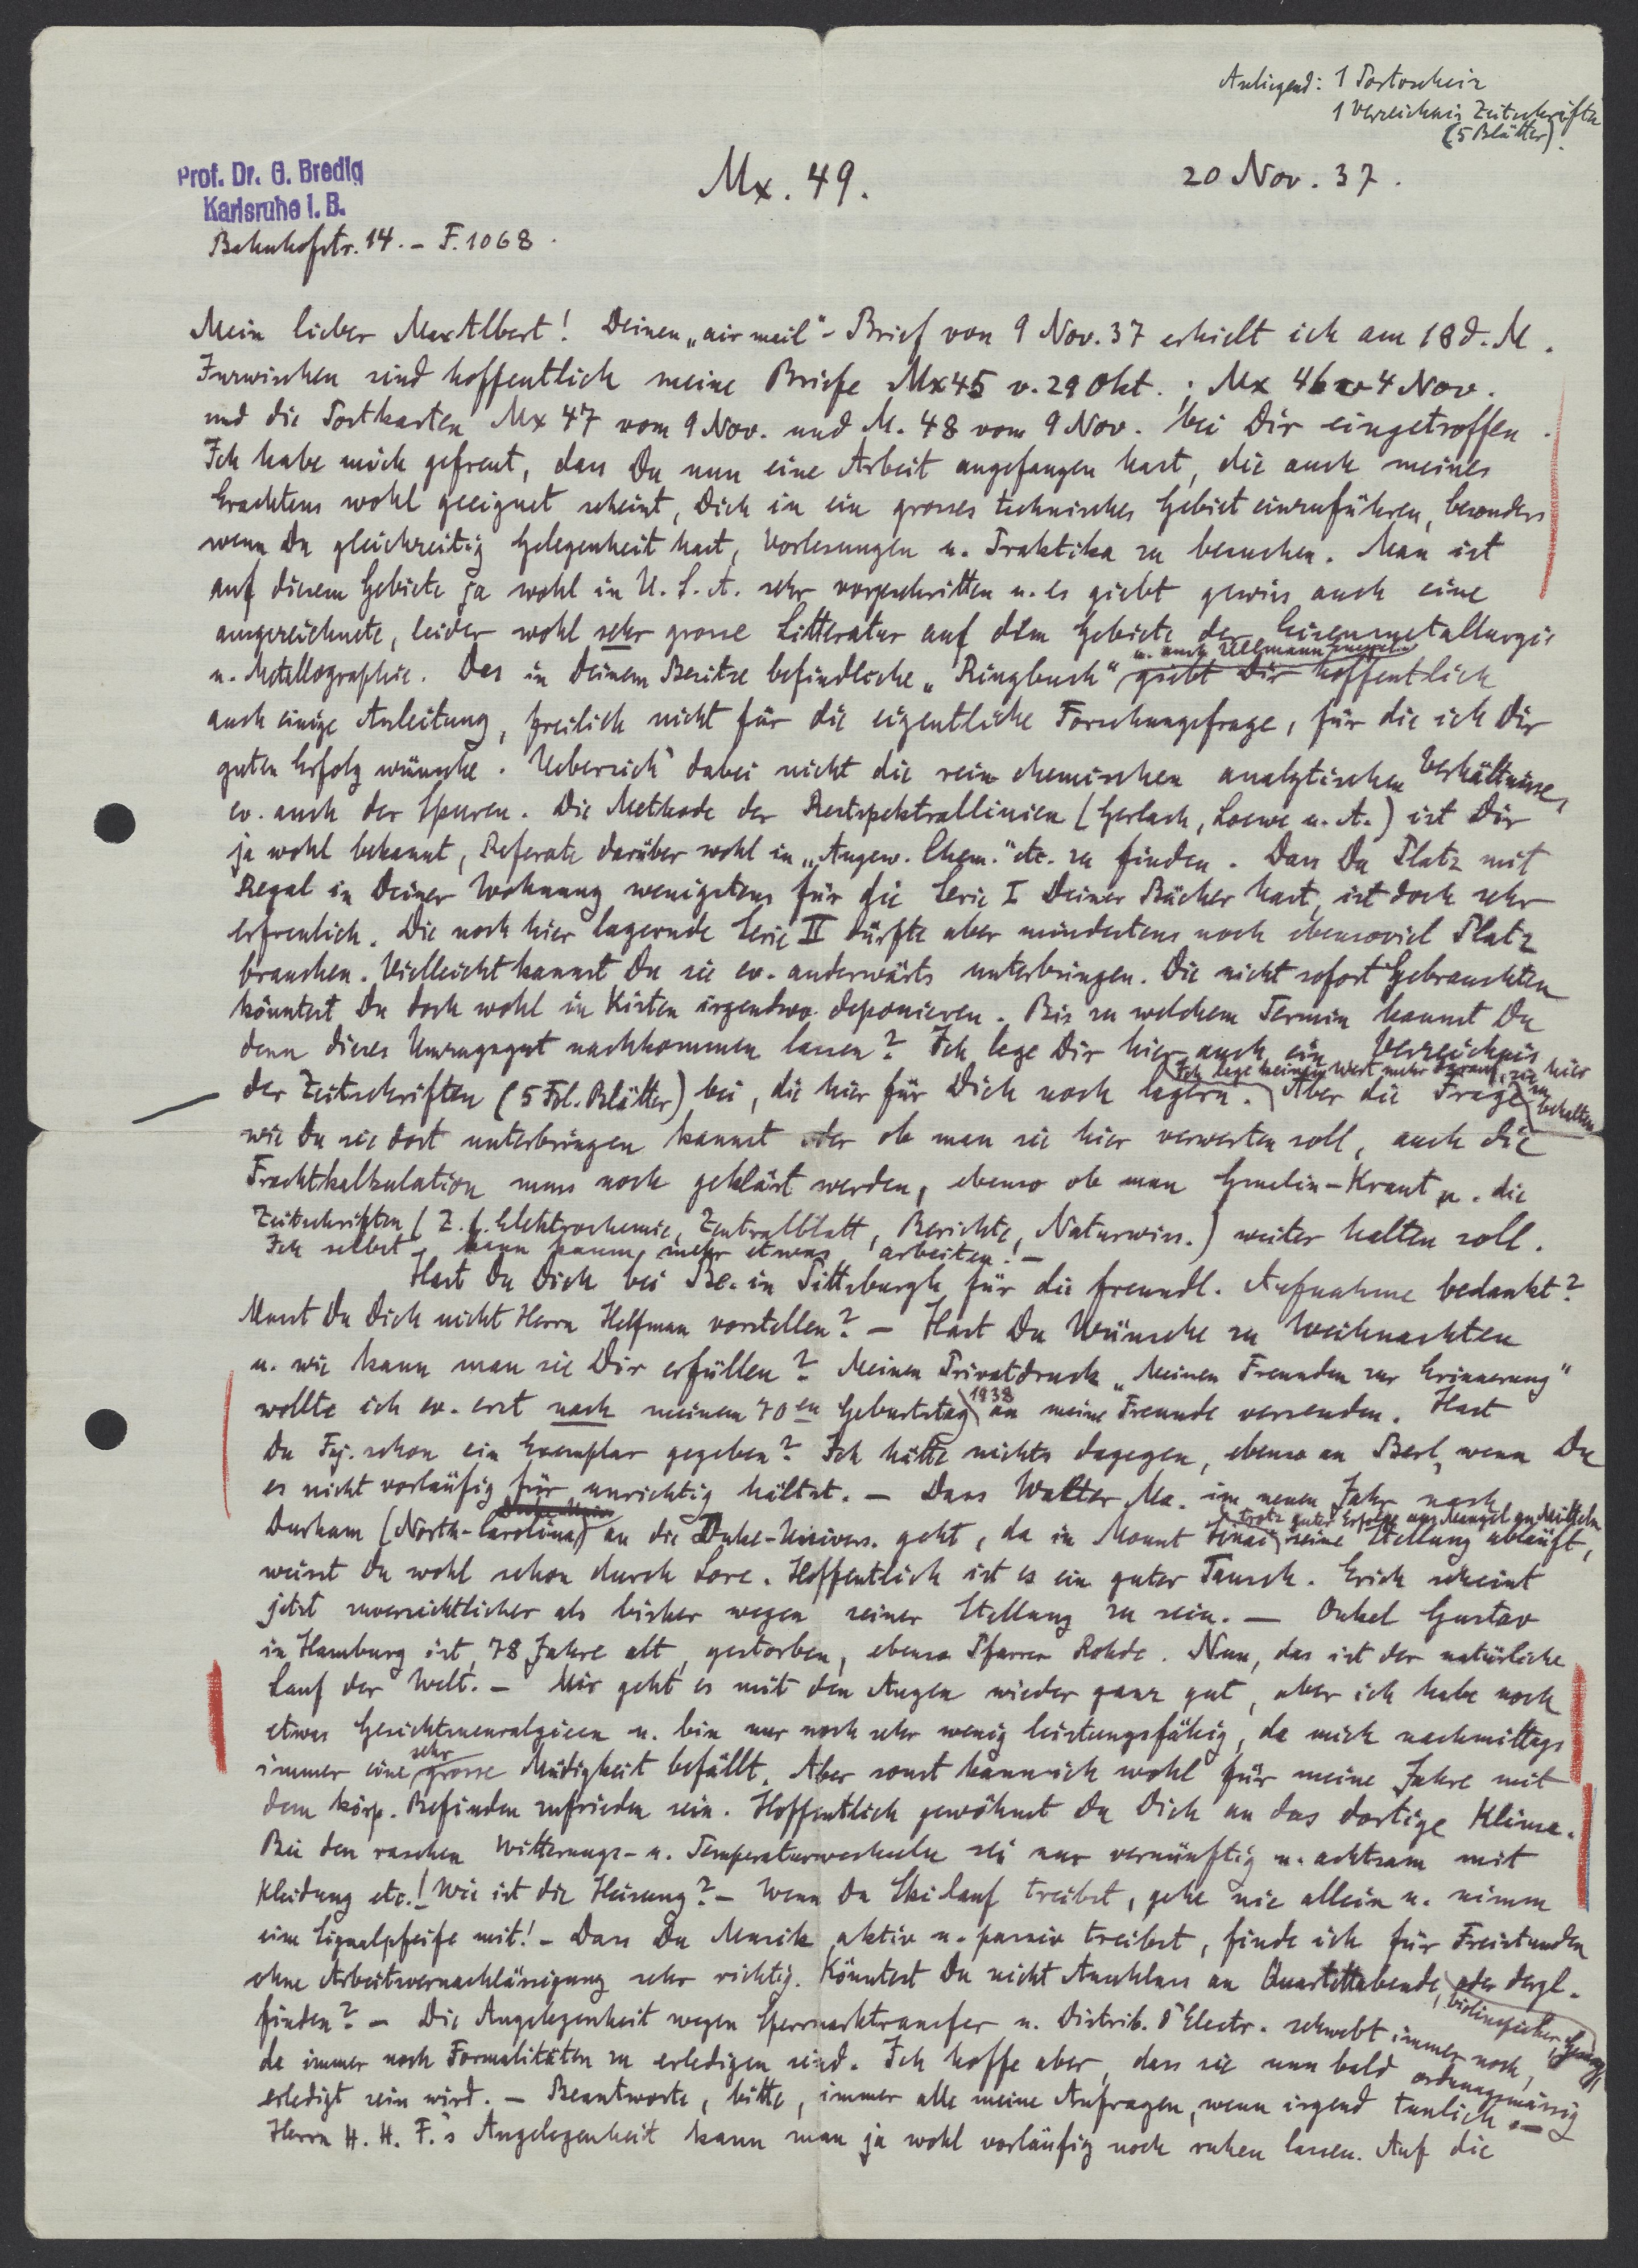 Anliegend: 1 Portoschein
1 Verzeichnis Zeitschriften
(5 Blätter).
Prof. Dr. G. Bredig
Karlsruhe i. B.
Bahnhofstr. 14. – F. 1068.
Mx. 49.
20 Nov. 37.
Mein lieber Max Albert! Deinen „air mail“-Brief von 9 Nov. 37 erhielt ich am 18 d. M.
Inzwischen sind hoffentlich meine Briefe Mx 45 v. 29 Okt.; Mx 46 v 4 Nov.
und die Postkarten Mx 47 vom 9 Nov. und M. 48 vom 9 Nov. bei Dir eingetroffen.
Ich habe mich gefreut, dass Du nun eine Arbeit angefangen hast, die auch meines
Erachtens wohl geeignet scheint, Dich in ein grosses technisches Gebiet einzuführen, besonders
wenn Du gleichzeitig Gelegenheit hast, Vorlesungen u. Praktika zu besuchen. Man ist
auf diesem Gebiete ja wohl in U. S. A. sehr vorgeschritten u. es giebt gewiss auch eine
ausgezeichnete, leider wohl sehr grosse Litteratur auf dem Gebiete der Eisenmetallurgie
u. Metallographie. Das in Deinem Besitze befindliche „Ringbuch“ u. auch Ullmann giebt Dir hoffentlich
auch einige Anleitung, freilich nicht für die eigentliche Forschungsfrage, für die ich Dir
guten Erfolg wünsche. Uebersieh' dabei nicht die rein chemischen analytischen Verhältnisse,
ev. auch der Spuren. Die Methode der Restspektrallinien (Gerlach, Loewe u. A.) ist Dir
ja wohl bekannt, Referate darüber wohl in „Angew. Chem.“ etc. zu finden. Dass Du Platz mit
Regal in Deiner Wohnung wenigstens für die Serie I Deiner Bücher hast, ist doch sehr
erfreulich. Die noch hier lagernde Serie II dürfte aber mindestens noch ebensoviel Platz
brauchen. Vielleicht kannst Du sie ev. anderwärts unterbringen. Die nicht sofort Gebrauchten
könntest Du doch wohl in Kisten irgendwo deponieren. Bis zu welchem Termin kannst Du
denn dieses Umzugsgut nachkommen lassen? Ich lege Dir hier auch ein Verzeichnis
der Zeitschriften (5 Fol. Blätter) bei, die hier für Dich noch lagern. Ich lege keinen Wert mehr darauf, sie hier zu behalten. Aber die Frage
wie Du sie dort unterbringen kannst oder ob man sie hier verwerten soll, auch die
Frachtkalkulation muss noch geklärt werden, ebenso ob man Gmelin-Kraut u. die
Zeitschriften (Z. f. Elektrochemie, Zentralblatt, Berichte, Naturwiss.) weiter halten soll.
Ich selbst kann kaum mehr etwas arbeiten! –
Hast Du Dich bei Be. in Pittsburgh für die freundl. Aufnahme bedankt?
Musst Du Dich nicht Herrn Helfman vorstellen? – Hast Du Wünsche zu Weihnachten
u. wie kann man sie Dir erfüllen? Meinen Privatdruck „Meinen Freunden zur Erinnerung“
wollte ich ev. erst nach meinem 70en Geburtstag 1938 an meine Freunde versenden. Hast
Du Faj. schon ein Exemplar gegeben? Ich hätte nichts dagegen, ebenso an Berl, wenn Du
es nicht vorläufig für unrichtig hältst. – Dass Walter Ma. im neuen Jahr nach
Durham (North-Carolina) an die Duke-Univers. geht, da in Mount Sinai trotz guter Erfolge aus Mangel an Mitteln seine Stellung abläuft,
weisst Du wohl schon durch Lore. Hoffentlich ist es ein guter Tausch. Erich scheint
jetzt zuversichtlicher als bisher wegen seiner Stellung zu sein. – Onkel Gustav
in Hamburg ist, 78 Jahre alt, gestorben, ebenso Pfarrer Rohde. Nun, das ist der natürliche
Lauf der Welt. – Mir geht es mit den Augen wieder ganz gut, aber ich habe noch
etwas Gesichtsneuralgieen u. bin nur noch sehr wenig leistungsfähig, da mich nachmittags
immer eine sehr grosse Müdigkeit befällt. Aber sonst kann ich wohl für meine Jahre mit
dem körp. Befinden zufrieden sein. Hoffentlich gewöhnst Du Dich an das dortige Klima.
Bei den raschen Witterungs- u. Temperaturwechseln sei nur vernünftig u. achtsam mit
Kleidung etc.! Wie ist die Heizung? – Wenn Du Skilauf treibst, gehe nie allein u. nimm
eine Signalpfeife mit! – Dass Du Musik, aktiv u. passiv treibst, finde ich für Freistunden
ohne Arbeitsvernachlässigung sehr richtig. Könntest Du nicht Anschluss an Quartettabende, oder dergl.
finden? – Die Angelegenheit wegen Sperrmarktransfer u. Distrib. d'Electr. schwebt immer noch,
da immer noch Formalitäten zu erledigen sind. Ich hoffe aber, dass sie nun bald ordnungsmässig
erledigt sein wird. – Beantworte, bitte, immer alle meine Anfragen, wenn irgend tunlich. –
Herrn H. H. F.'s Angelegenheit kann man ja wohl vorläufig noch ruhen lassen. Auf die